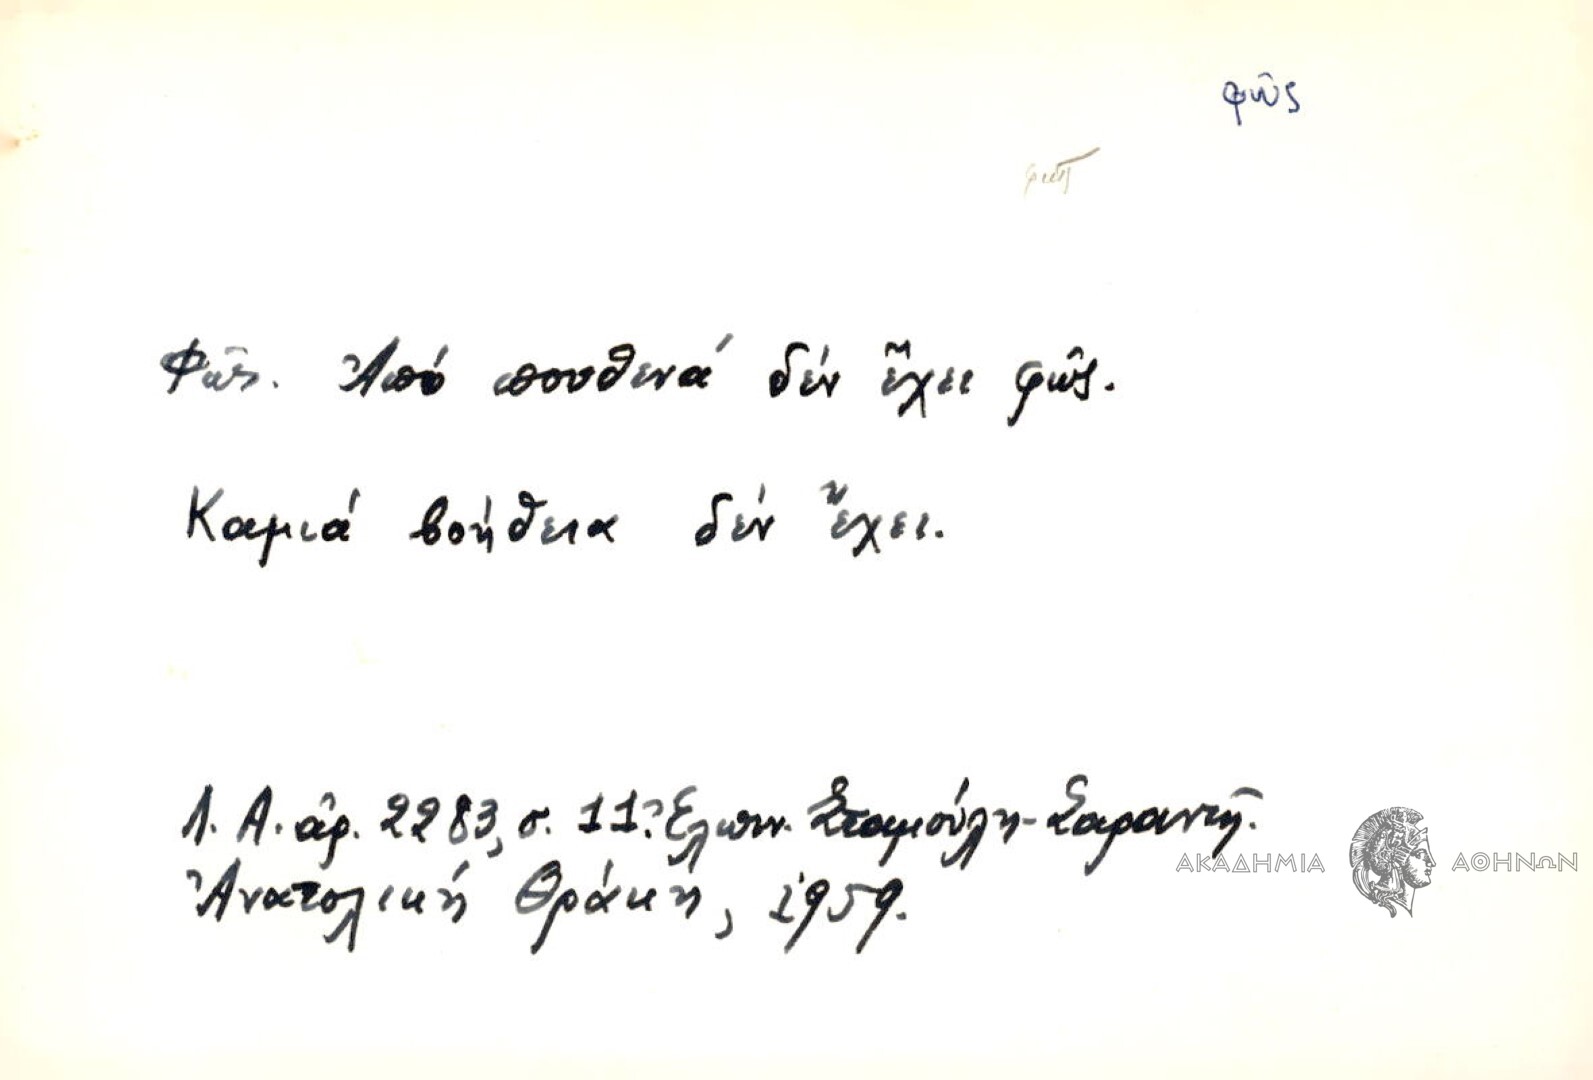 φῶς
Φῶς. Ἀπό πουθενά δέν ἔχει φῶς.
Καμιά βοήθεια δέν ἔχει.
Λ. Α. ἀρ. 2283, σ. 11. Ἐλπιν. Σταμούλη-Σαραντῆ.
Ἀνατολική Θράκη, 1959.
ΑΚΑΔΗΜΙΑ ΑΘΗΝΩΝ